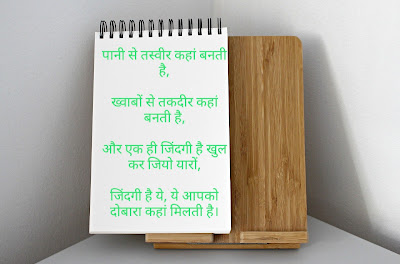 पानी से तस्वीर कहां बनती
है,
ख्वाबों से तकदीर कहां
बनती है,
और एक ही जिंदगी है खुल
कर जियो यारों,
जिंदगी है ये, ये आपको
दोबारा कहां मिलती है।